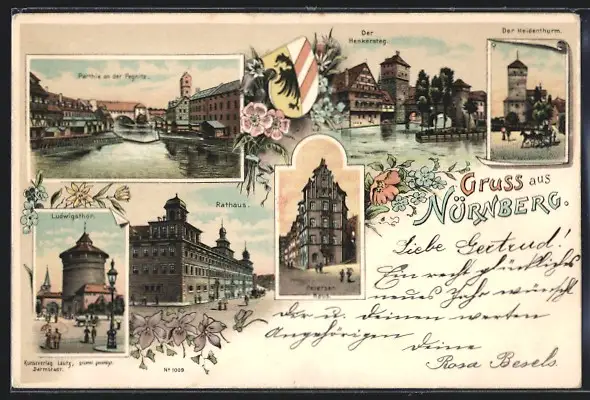 Parthie an der Pegnitz.
Der
Henkersteg.
Der Heidenthurm.
Gruss aus
Nürnberg.
Ludwigsthor.
Rathaus.
Petersen
Haus.
Liebe Gertrud!
Ein recht glückliches
neues Jahr wünscht
dir u. deinen werten
Angehörigen
deine
Rosa Besels.
Kunstverlag Lautz,
Darmstadt.
No 1009